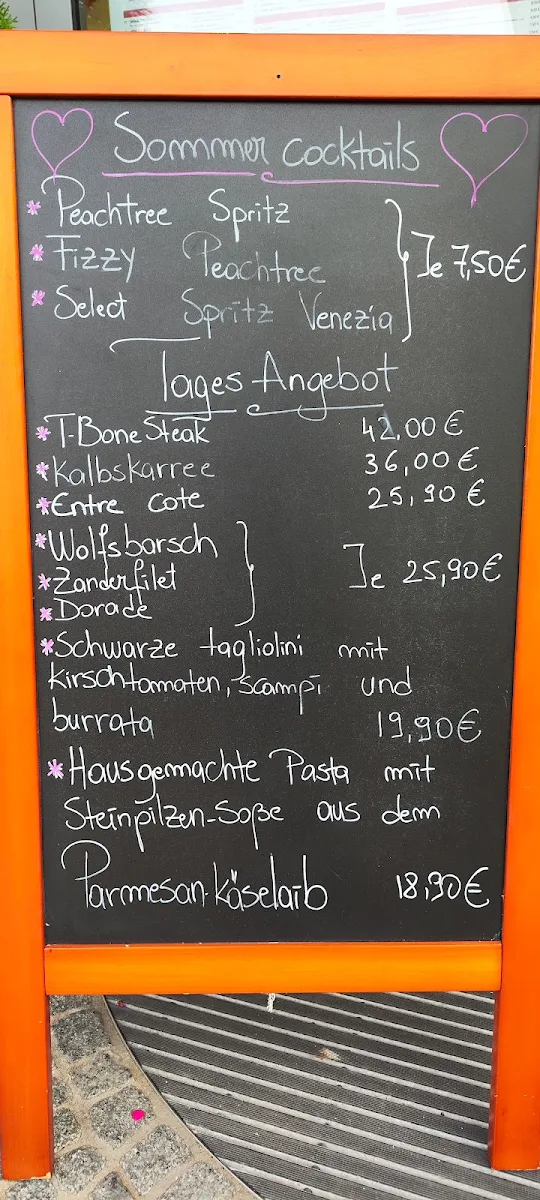 Sommer cocktails
* Peachtree Spritz
* Fizzy Peachtree
* Select Spritz Venezia
Je 7,50€
Tages Angebot
* T-Bone Steak 42,00 €
* Kalbskarree 36,00 €
* Entre cote 25,90 €
* Wolfsbarsch
* Zanderfilet
* Dorade
Je 25,90€
* Schwarze tagliolini mit
kirschtomaten, scampi und
burrata 19,90€
* Hausgemachte Pasta mit
Steinpilzen-Soße aus dem
Parmesan-käselaib 18,90€